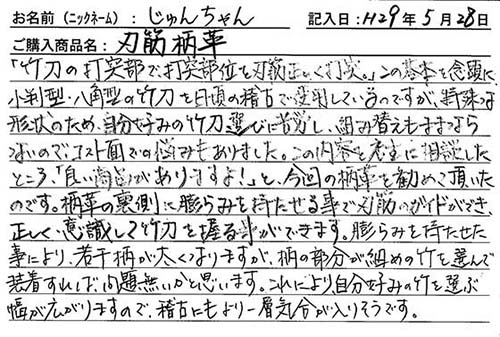 お名前（ニックネーム）：じゅんちゃん 記入日：H29年5月28日
ご購入商品名：刃筋柄革
「竹刀の打突部で打突部位を刃筋正しく打突。」この基本を念頭に、
小判型・八角型の竹刀を日頃の稽古で使用しているのですが、特殊な
形状のため、自分好みの竹刀選びに苦労し、組み替えもままなら
ないので、コスト面での悩みもありました。この内容を先生に相談した
ところ、「良い商品がありますよ！」と、今回の柄革を勧めて頂いた
のです。柄革の裏側に膨らみを持たせる事で刃筋のガイドができ、
正しく、意識して竹刀を握る事ができます。膨らみを持たせた
事により、若干柄が太くなりますが、柄の部分が細めの竹を選んで
装着すれば、問題無いかと思います。これにより自分好みの竹を選ぶ
幅が広がりますので、稽古にもより一層気合が入りそうです。